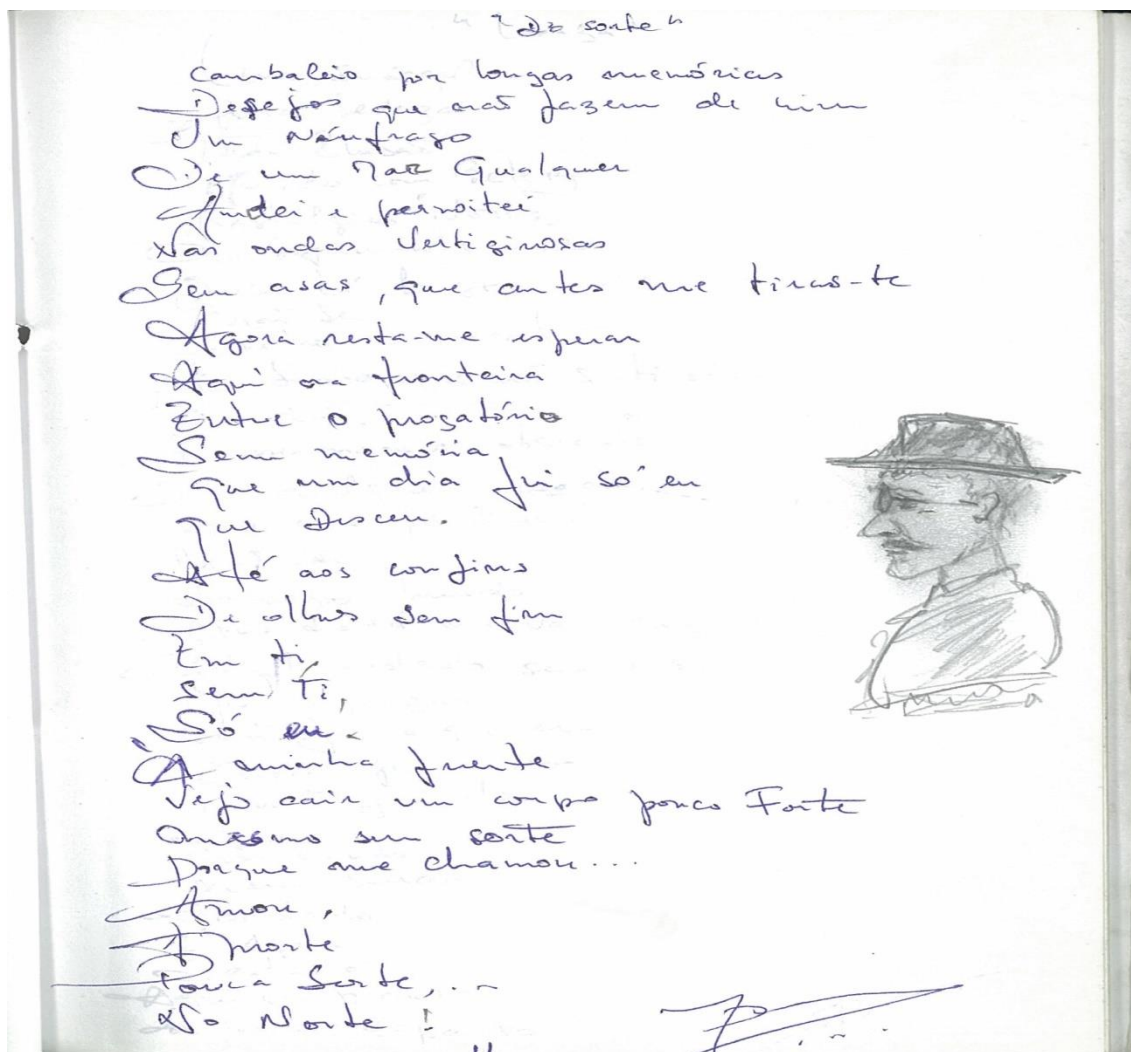 "Da sorte"
Cambaleio por longas memórias
Desejos que não fazem de mim
Um Náufrago
De um Mar Qualquer
Andei e pernoitei
Nas ondas Vertiginosas
Sem asas, que antes me tiras-te
Agora resta-me esperar
Aqui na fronteira
Entre o progatório
Sem memória,
Que um dia fui só eu
Que Desceu.
Até aos confins
De olhos sem fim
Em ti,
Sem Ti,
Só eu.
À minha frente
Vejo cair um corpo pouco Forte
mesmo sem sorte
Porque me chamou...
Amou,
A morte
Pouca Sorte,..
No Norte !